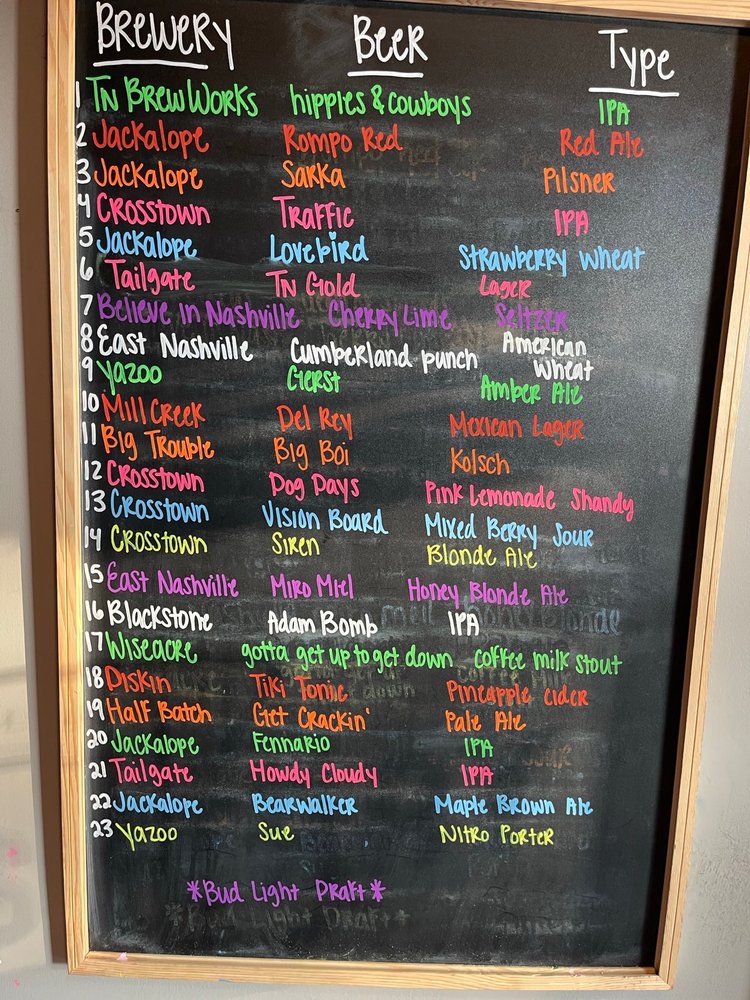 Brewery Beer Type
1 TN BrewWorks hippies & cowboys IPA
2 Jackalope Rompo Red Red Ale
3 Jackalope Sarka Pilsner
4 Crosstown Traffic IPA
5 Jackalope Lovebird Strawberry Wheat
6 Tailgate TN Gold Lager
7 Believe in Nashville Cherry Lime Seltzer
8 East Nashville Cumberland punch American Wheat
9 Yazoo Gerst Amber Ale
10 Mill Creek Del Rey Mexican Lager
11 Big Trouble Big Boi Kolsch
12 Crosstown Dog Days Pink Lemonade Shandy
13 Crosstown Vision Board Mixed Berry Sour
14 Crosstown Siren Blonde Ale
15 East Nashville Miro Miel Honey Blonde Ale
16 Blackstone Adam Bomb IPA
17 Wiseacre gotta get up to get down coffee milk stout
18 Diskin Tiki Tonic Pineapple Cider
19 Half Batch Get Crackin' Pale Ale
20 Jackalope Fennario IPA
21 Tailgate Howdy Cloudy IPA
22 Jackalope Bearwalker Maple Brown Ale
23 Yazoo Sue Nitro Porter
*Bud Light Draft*